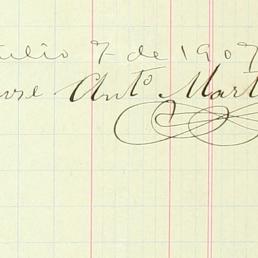 ulio 7 de 1907
ose Antº Mart